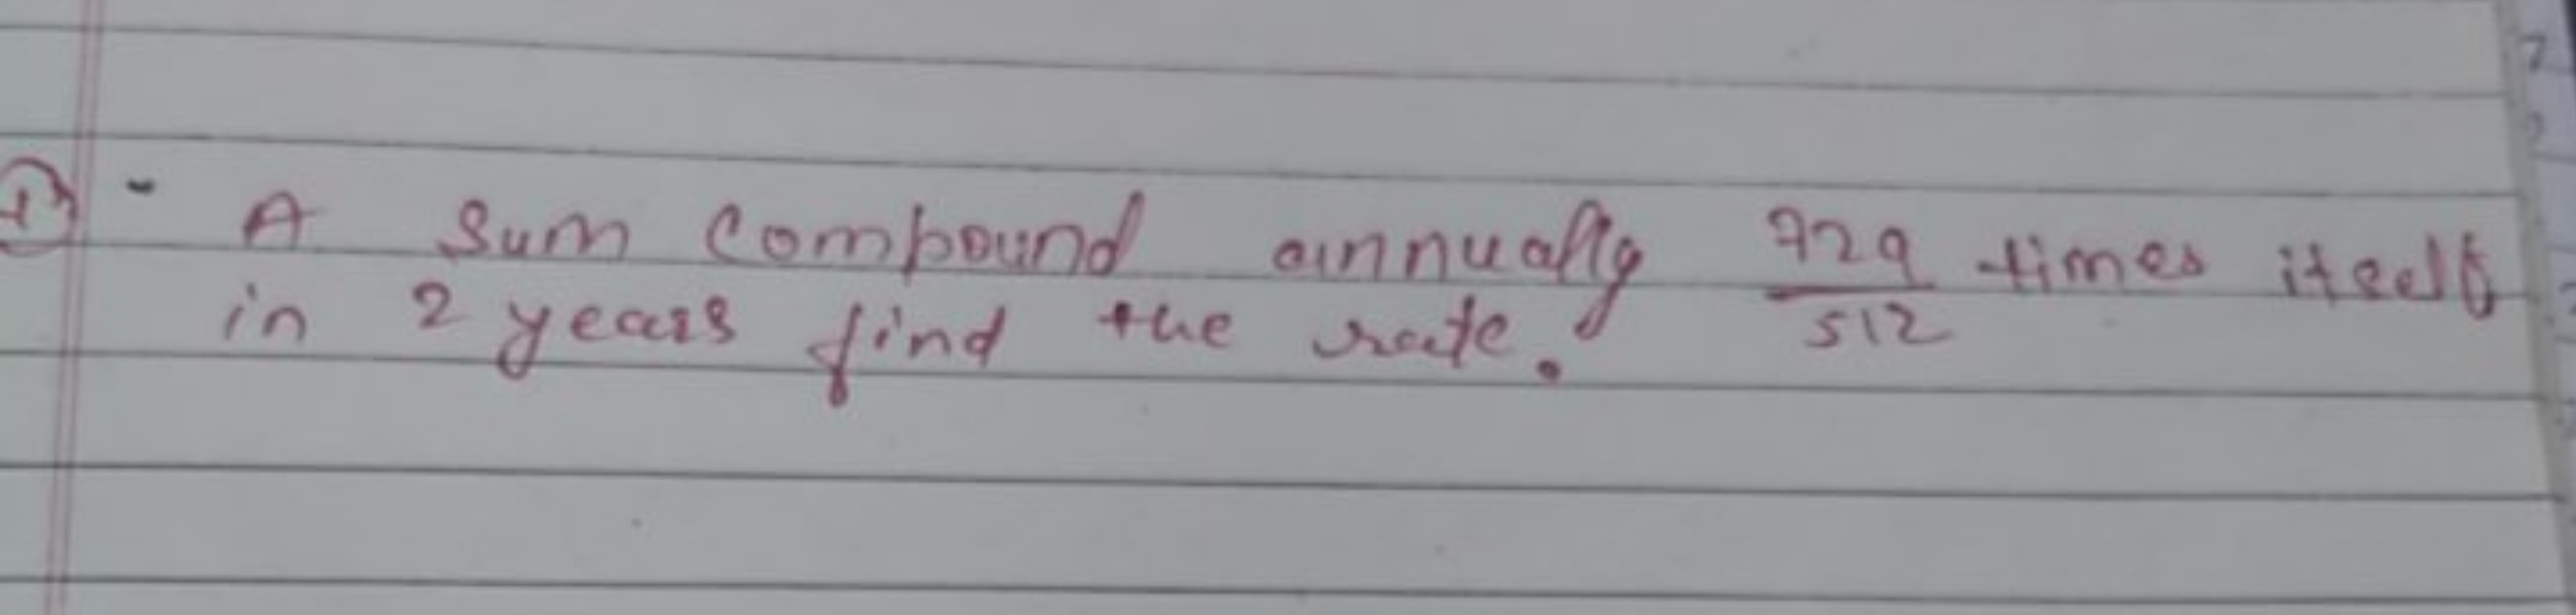 1) A Sum Compound annually 729/512 times itself
in 2 years find the rate.